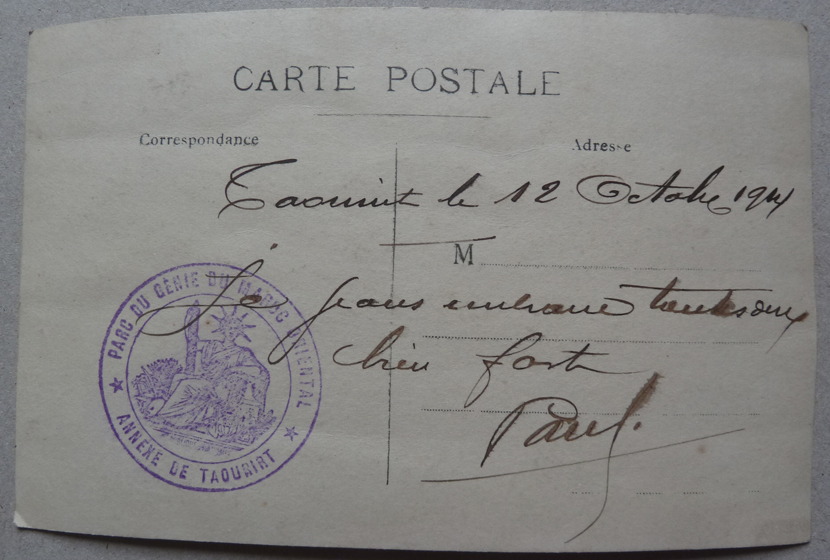 CARTE POSTALE
Correspondance
Adresse
Taourirt le 12 Octobre 1914
M
Je vous embrasse toutes deux
bien fort
Paul.
PARC DU GÉNIE DU MAROC ORIENTAL
ANNEXE DE TAOURIRT